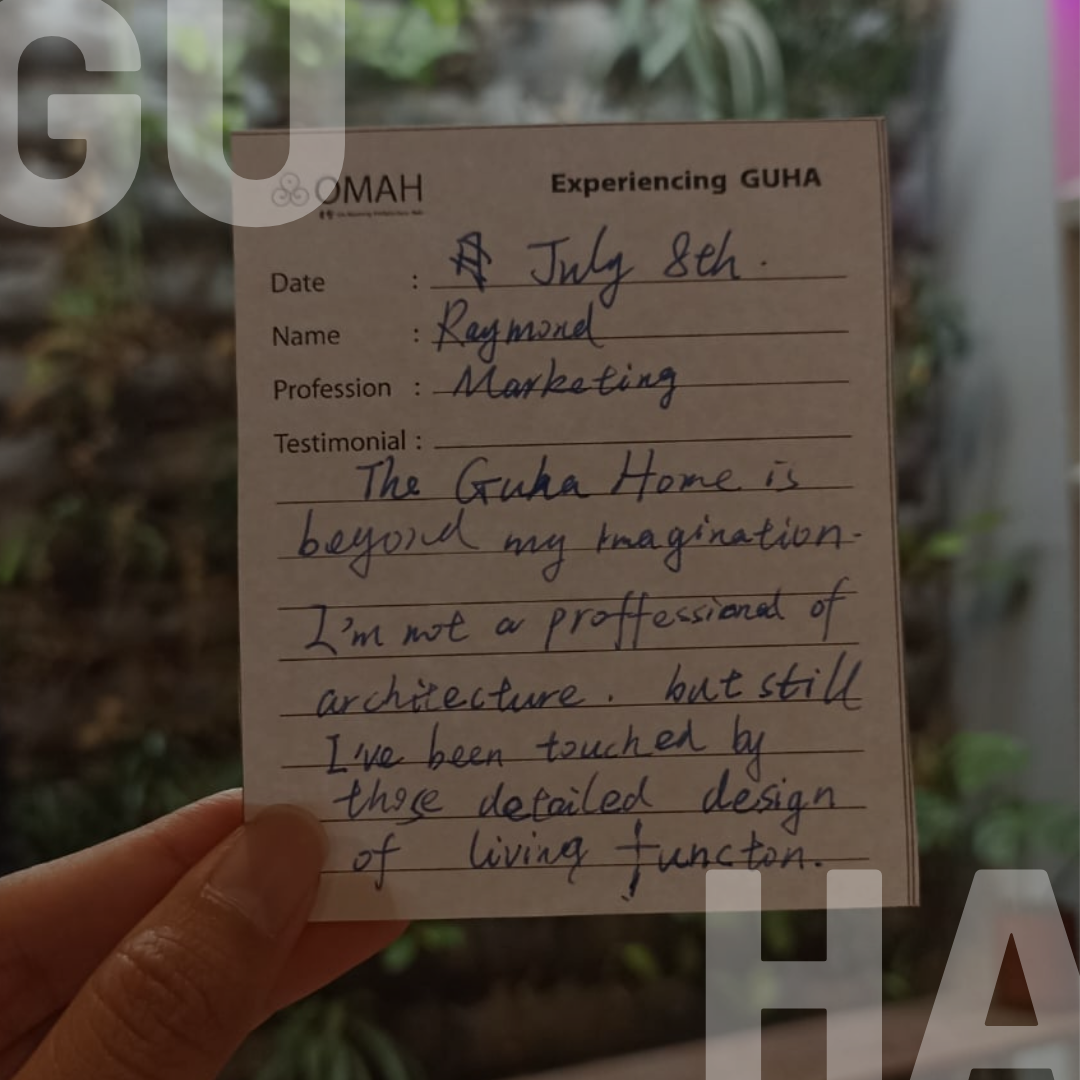 GU
OMAH
Experiencing GUHA
Date : July 8th.
Name : Raymond
Profession : Marketing
Testimonial :
The Guha Home is
beyond my imagination.
I'm not a proffessional of
architecture. but still
I've been touched by
those detailed design
of living functon.
HA